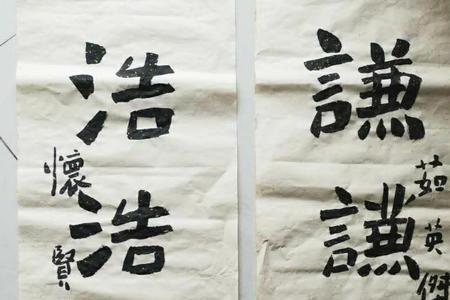 謙謙
茹英傑
浩浩
懷賢